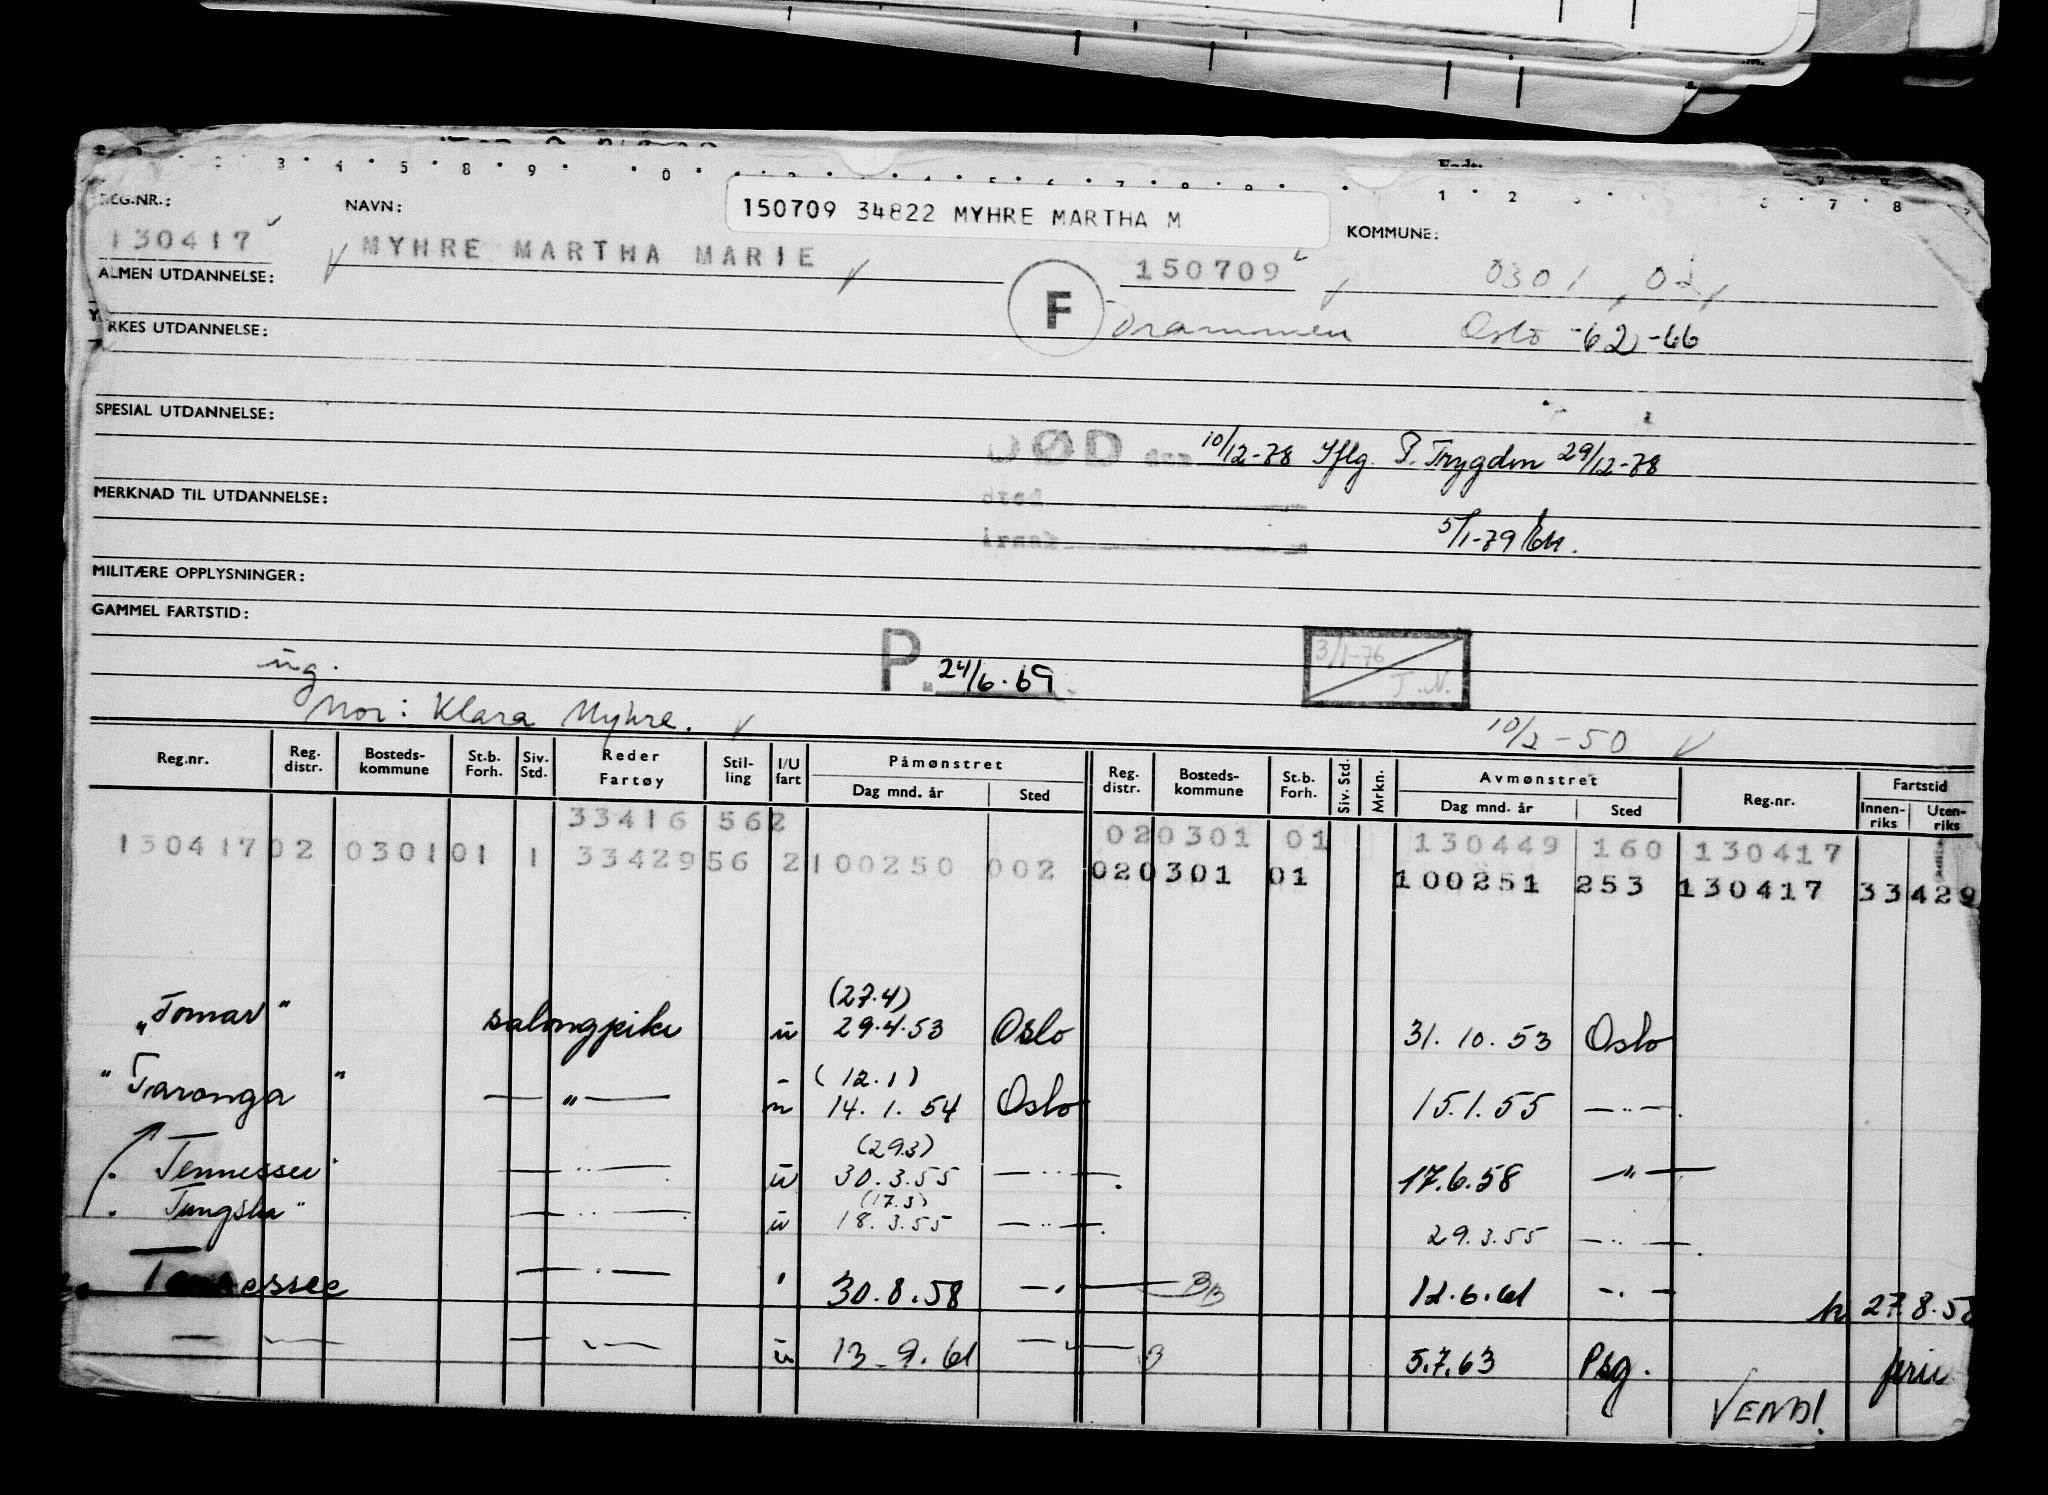 REG.NR.:
NAVN:
150709 34822 MYHRE MARTHA M
KOMMUNE:
130417
MYHRE MARTHA MARIE
150709
0301
ALMEN UTDANNELSE:
F
Drammen
Oslo -62-66
YRKES UTDANNELSE:
SPESIAL UTDANNELSE:
DØD den 10/12-78 Iflg. P. Trygden 29/12-78
MERKNAD TIL UTDANNELSE:
sted
5/1-79
årsak
MILITÆRE OPPLYSNINGER:
GAMMEL FARTSTID:
P. 24/6.69
3/1-76
J.N.
ug.
Mor: Klara Myhre.
10/2-50
Reg.nr. Reg. distr. Bosteds-kommune St.b. Forh. Siv. Std. Reder Fartøy Stil-ling I/U fart Påmønstret Dag mnd. år Sted Reg. distr. Bosteds-kommune St.b. Forh. Siv. Std. Mrkn. Avmønstret Dag mnd. år Sted Reg.nr. Fartstid Innen-riks Uten-riks
33416 562 020301 01 130449 160 130417
130417 02 0301 01 1 33429 56 2 100250 002 020301 01 100251 253 130417 33429
(27.4)
"Tomar" salongpike u 29.4.53 Oslo 31.10.53 Oslo
(12.1)
"Taronga" — " — u 14.1.54 Oslo 15.1.55 — " —
(29.3)
Tennessee" — " — u 30.3.55 — " — 17.6.58 — " —
(17.3)
Tungsha" — " — u 18.3.55 — " — 29.3.55 — " —
Tennessee — " — 30.8.58 — " — 12.6.61 — " — 27.8.58
— — — — u 13.9.61 — " — 5.7.63 Psg. ferie
VEND!